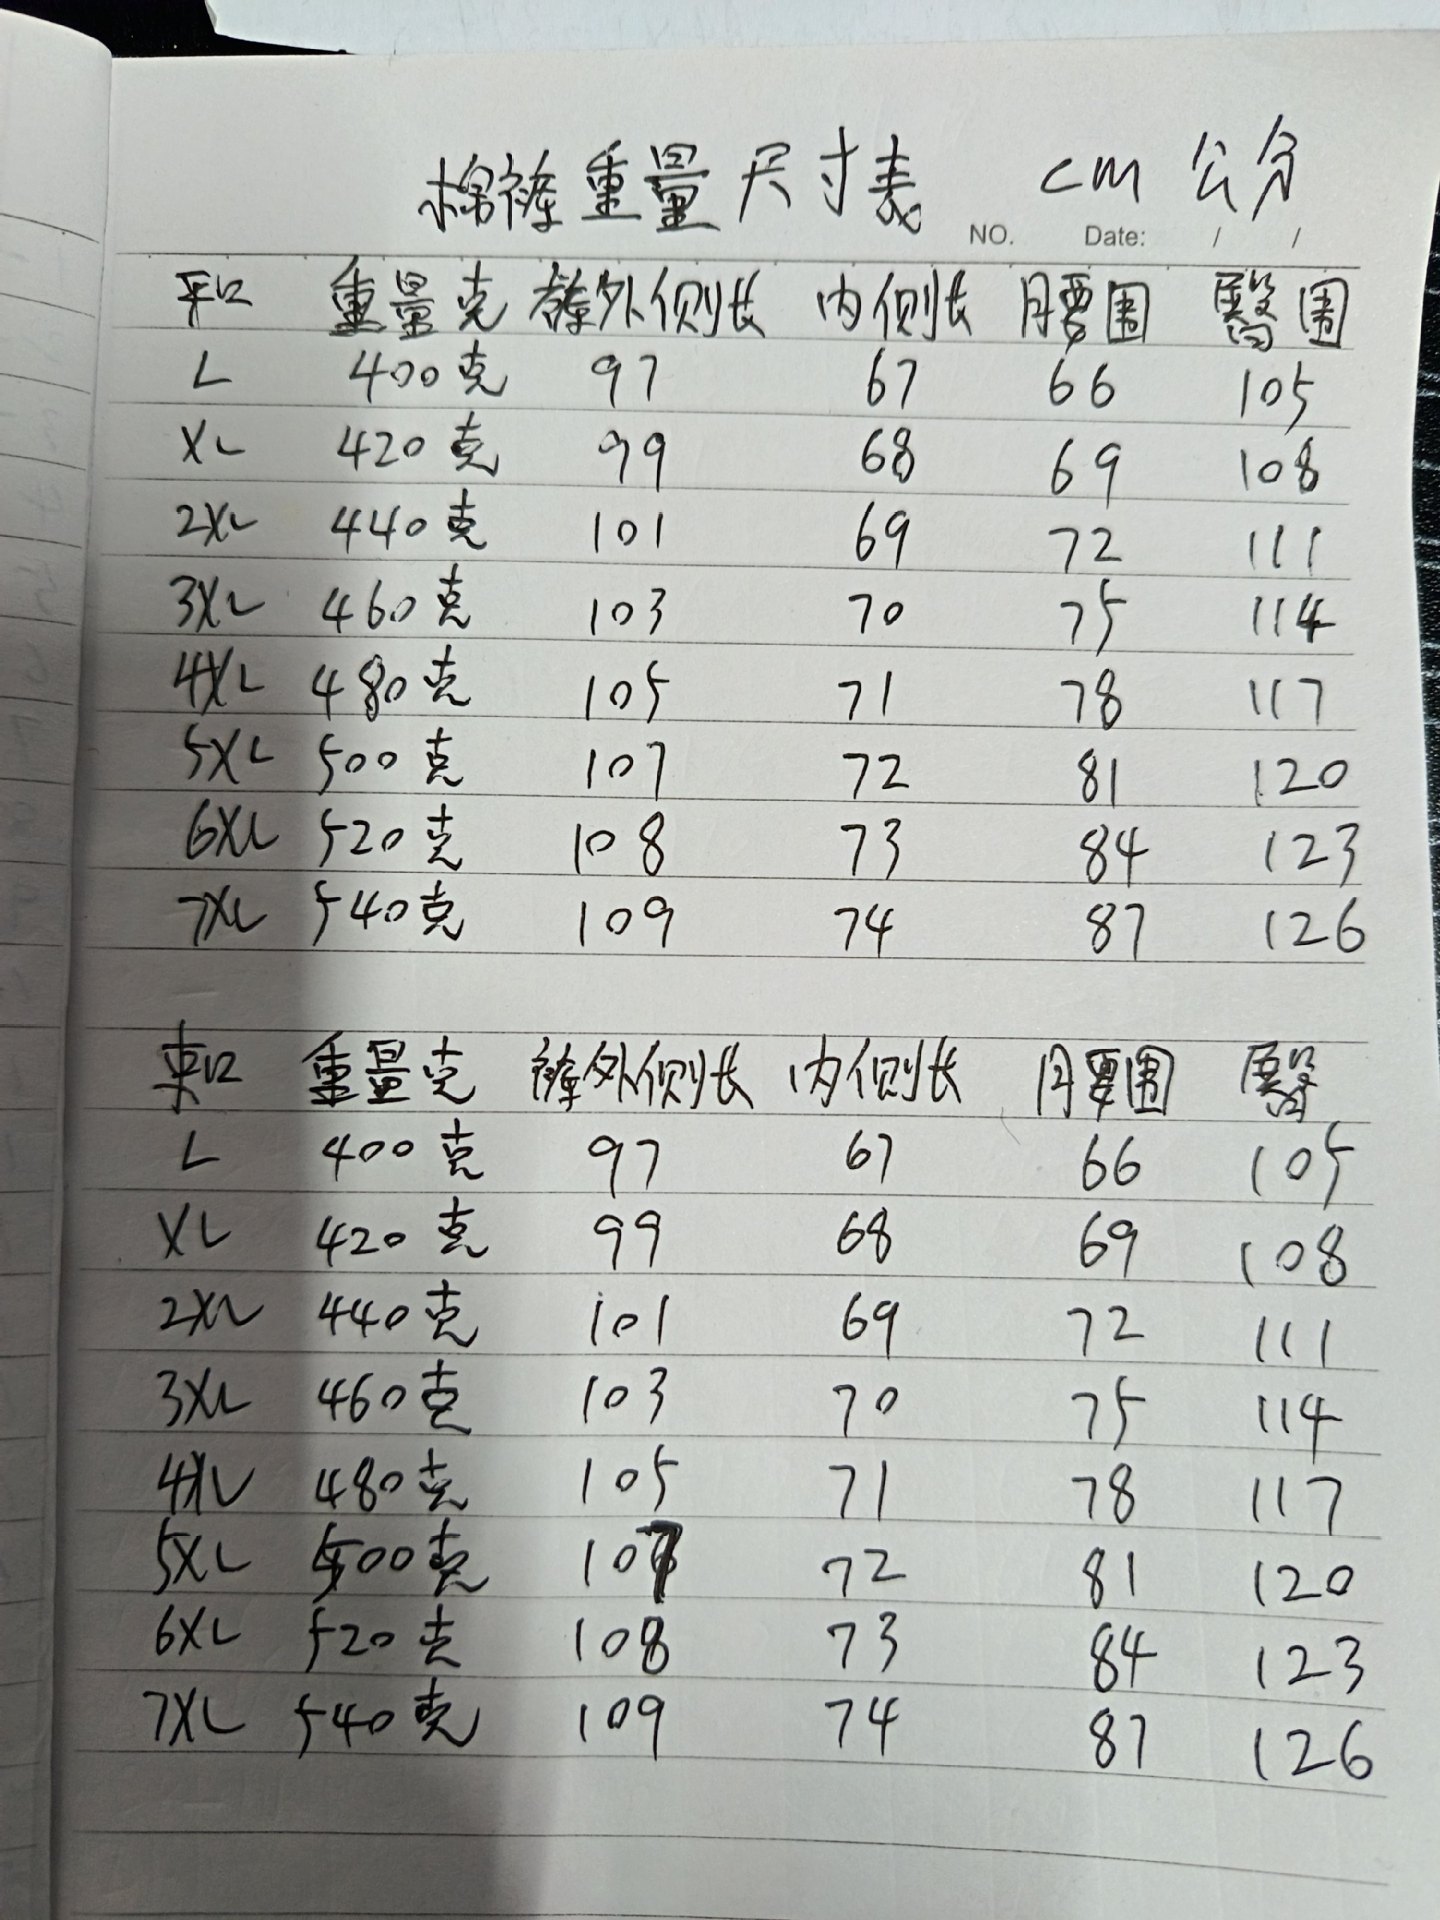 棉裤重量尺寸表 cm 公分
NO. Date: / /
平口 重量克 裤外侧长 内侧长 腰围 臀围
L 400克 97 67 66 105
XL 420克 99 68 69 108
2XL 440克 101 69 72 111
3XL 460克 103 70 75 114
4XL 480克 105 71 78 117
5XL 500克 107 72 81 120
6XL 520克 108 73 84 123
7XL 540克 109 74 87 126
束口 重量克 裤外侧长 内侧长 腰围 臀
L 400克 97 67 66 105
XL 420克 99 68 69 108
2XL 440克 101 69 72 111
3XL 460克 103 70 75 114
4XL 480克 105 71 78 117
5XL 500克 107 72 81 120
6XL 520克 108 73 84 123
7XL 540克 109 74 87 126